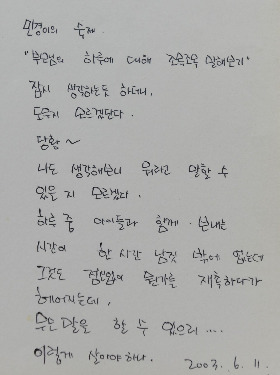 민경이의 숙제.
"부모님의 하루에 대해 조목조목 말해보기"
잠시 생각하는듯 하더니,
도무지 모르겠단다.
당황~
나도 생각해보니 뭐라고 말할 수
있을 지 모르겠다.
하루 중 아이들과 함께 보내는
시간이 한 시간 남짓 밖에 없는데
그것도 끊임없이 뭔가를 재촉하다가
헤어지는데,
무슨 말을 할 수 있으리....
이렇게 살아야 하나. 2003. 6. 11.